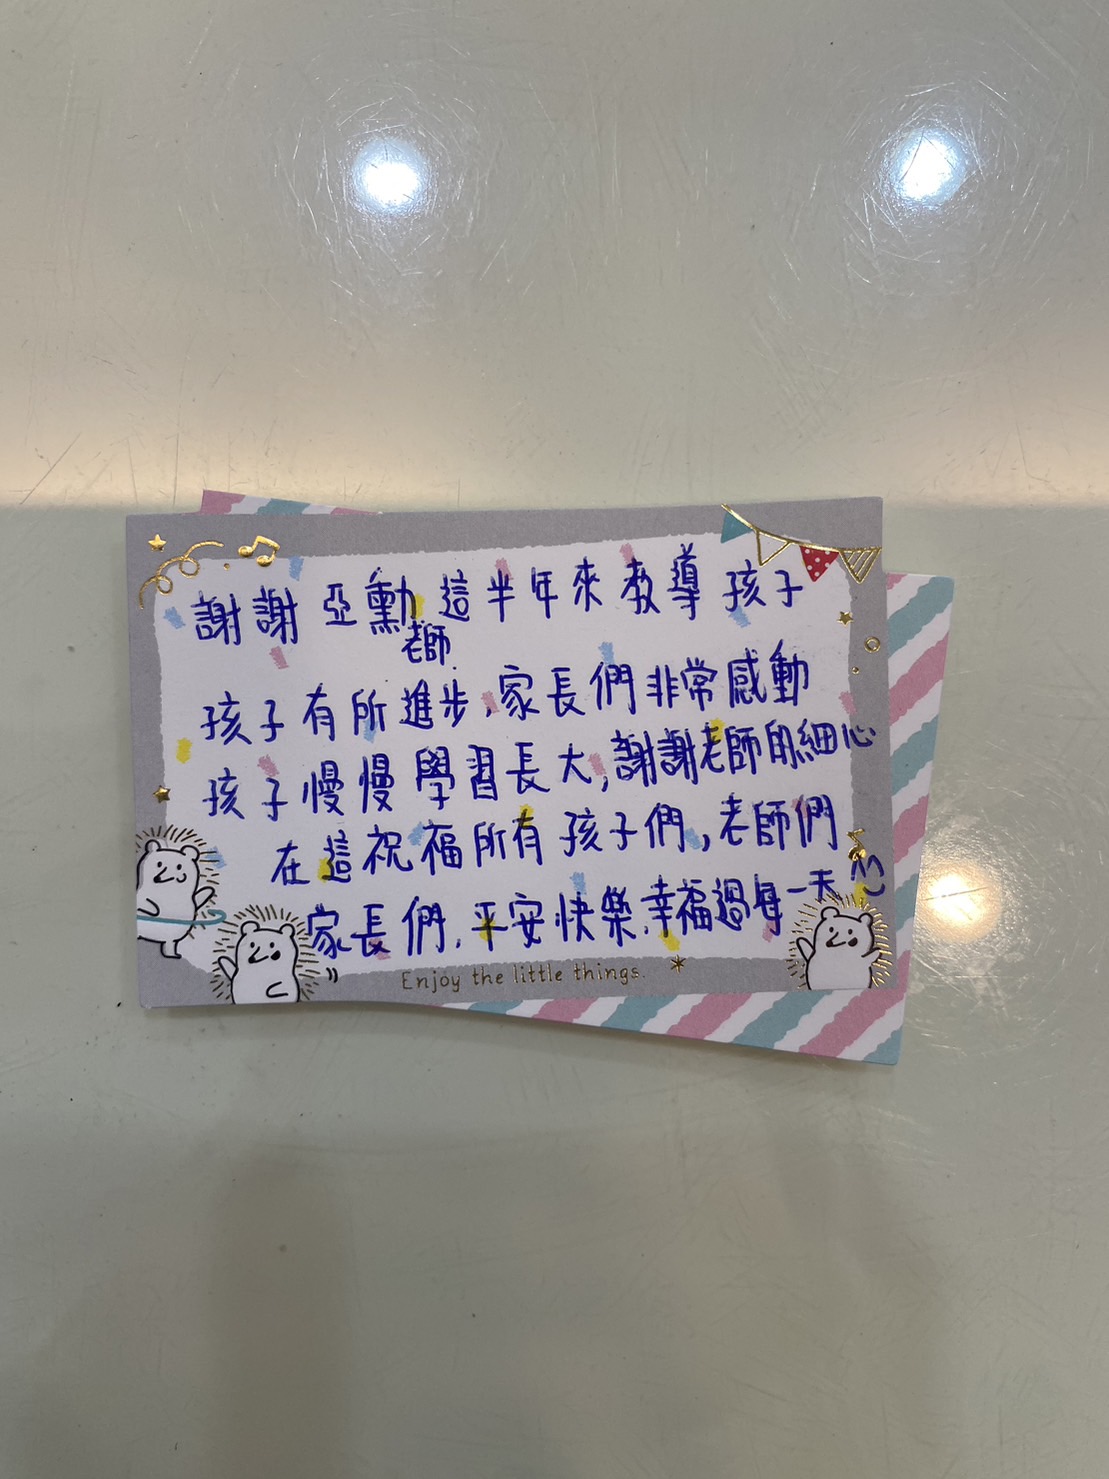 謝謝 亞勳 這半年來教導孩子
老師
孩子有所進步,家長們非常感動
孩子慢慢學習長大,謝謝老師的細心
在這祝福所有孩子們,老師們
家長們,平安快樂,幸福過每一天
Enjoy the little things.